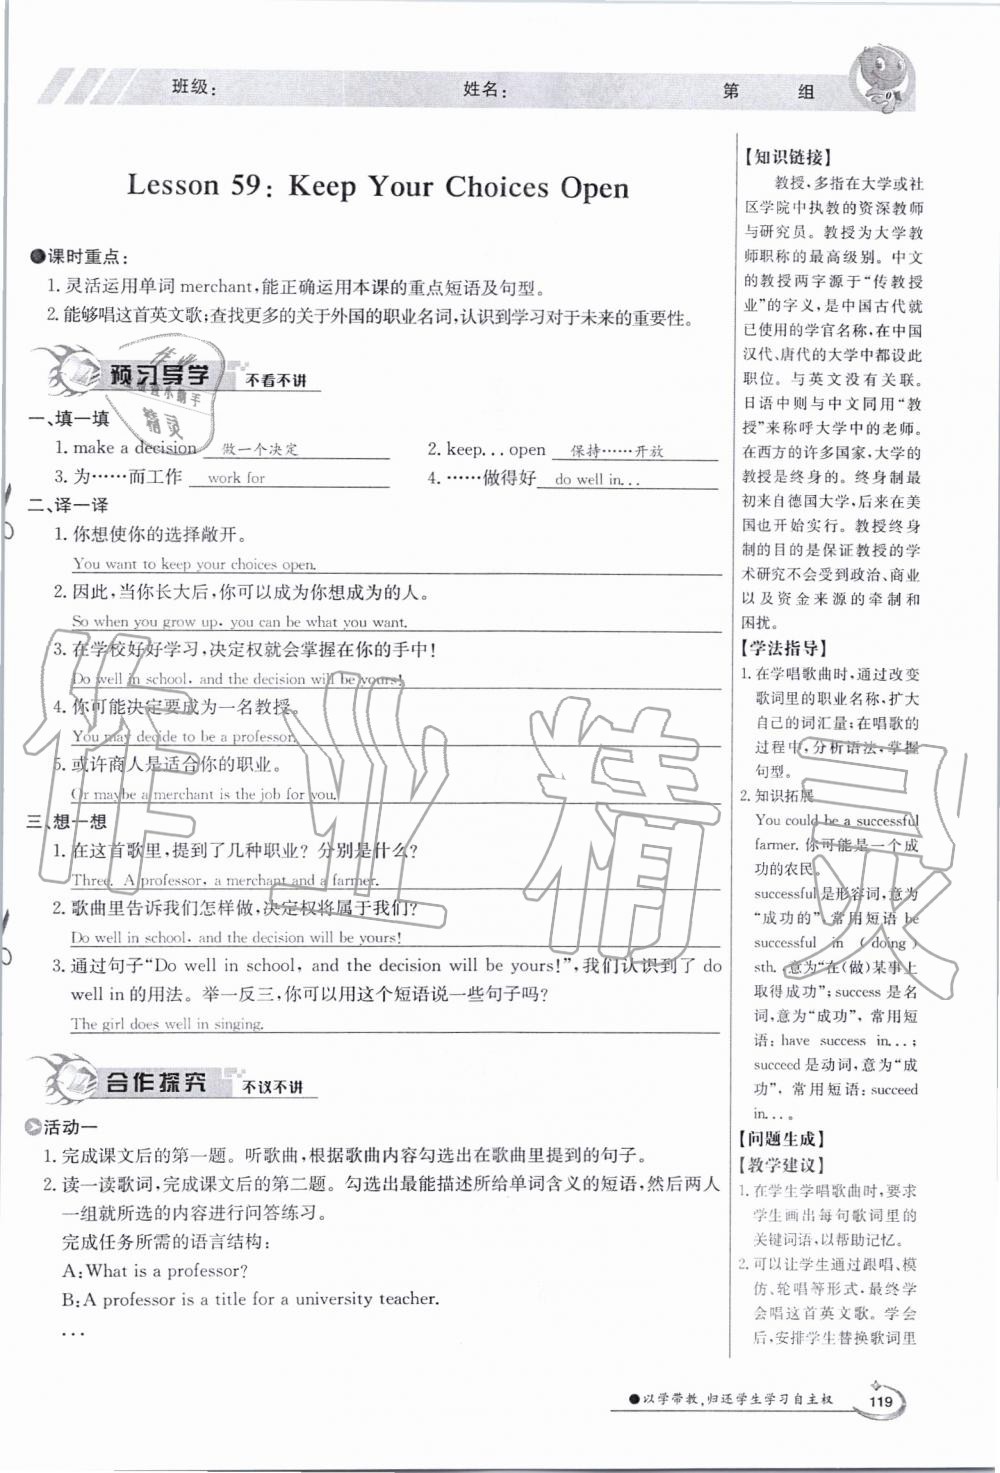 班级：
姓名：
第 组
Lesson 59: Keep Your Choices Open
●课时重点：
1. 灵活运用单词 merchant，能正确运用本课的重点短语及句型。
2. 能够唱这首英文歌；查找更多的关于外国的职业名词，认识到学习对于未来的重要性。
预习导学 不看不讲
一、填一填
1. make a decision 做一个决定
2. keep...open 保持……开放
3. 为……而工作 work for
4. ……做得好 do well in...
二、译一译
1. 你想使你的选择敞开。
You want to keep your choices open.
2. 因此，当你长大后，你可以成为你想成为的人。
So when you grow up, you can be what you want.
3. 在学校好好学习，决定权就会掌握在你的手中！
Do well in school, and the decision will be yours!
4. 你可能决定要成为一名教授。
You may decide to be a professor.
5. 或许商人是适合你的职业。
Or maybe a merchant is the job for you.
三、想一想
1. 在这首歌里，提到了几种职业？分别是什么？
Three. A professor, a merchant and a farmer.
2. 歌曲里告诉我们怎样做，决定权将属于我们？
Do well in school, and the decision will be yours!
3. 通过句子“Do well in school, and the decision will be yours!”，我们认识到了 do
well in 的用法。举一反三，你可以用这个短语说一些句子吗？
The girl does well in singing.
合作探究 不议不讲
活动一
1. 完成课文后的第一题。听歌曲，根据歌曲内容勾选出在歌曲里提到的句子。
2. 读一读歌词，完成课文后的第二题。勾选出最能描述所给单词含义的短语，然后两人
一组就所选的内容进行问答练习。
完成任务所需的语言结构：
A: What is a professor?
B: A professor is a title for a university teacher.
...
【知识链接】
教授，多指在大学或社
区学院中执教的资深教师
与研究员。教授为大学教
师职称的最高级别。中文
的教授两字源于“传教授
业”的字义，是中国古代就
已使用的学官名称，在中国
汉代、唐代的大学中都设此
职位。与英文没有关联。
日语中则与中文同用“教
授”来称呼大学中的老师。
在西方的许多国家，大学的
教授是终身的。终身制最
初来自德国大学，后来在美
国也开始实行。教授终身
制的目的是保证教授的学
术研究不会受到政治、商业
以及资金来源的牵制和
困扰。
【学法指导】
1. 在学唱歌曲时，通过改变
歌词里的职业名称，扩大
自己的词汇量；在唱歌的
过程中，分析语法，掌握
句型。
2. 知识拓展
You could be a successful
farmer. 你可能是一个成
功的农民。
successful 是形容词，意为
“成功的”，常用短语 be
successful in (doing)
sth. 意为“在(做)某事上
取得成功”；success 是名
词，意为“成功”，常用短
语：have success in...；
succeed 是动词，意为“成
功”，常用短语：succeed
in...。
【问题生成】
【教学建议】
1. 在学生学唱歌曲时，要求
学生画出每句歌词里的
关键词语，以帮助记忆。
2. 可以让学生通过跟唱、模
仿、轮唱等形式，最终学
会唱这首英文歌。学会
后，安排学生替换歌词里
●以学带教，归还学生学习自主权
119
作业精灵